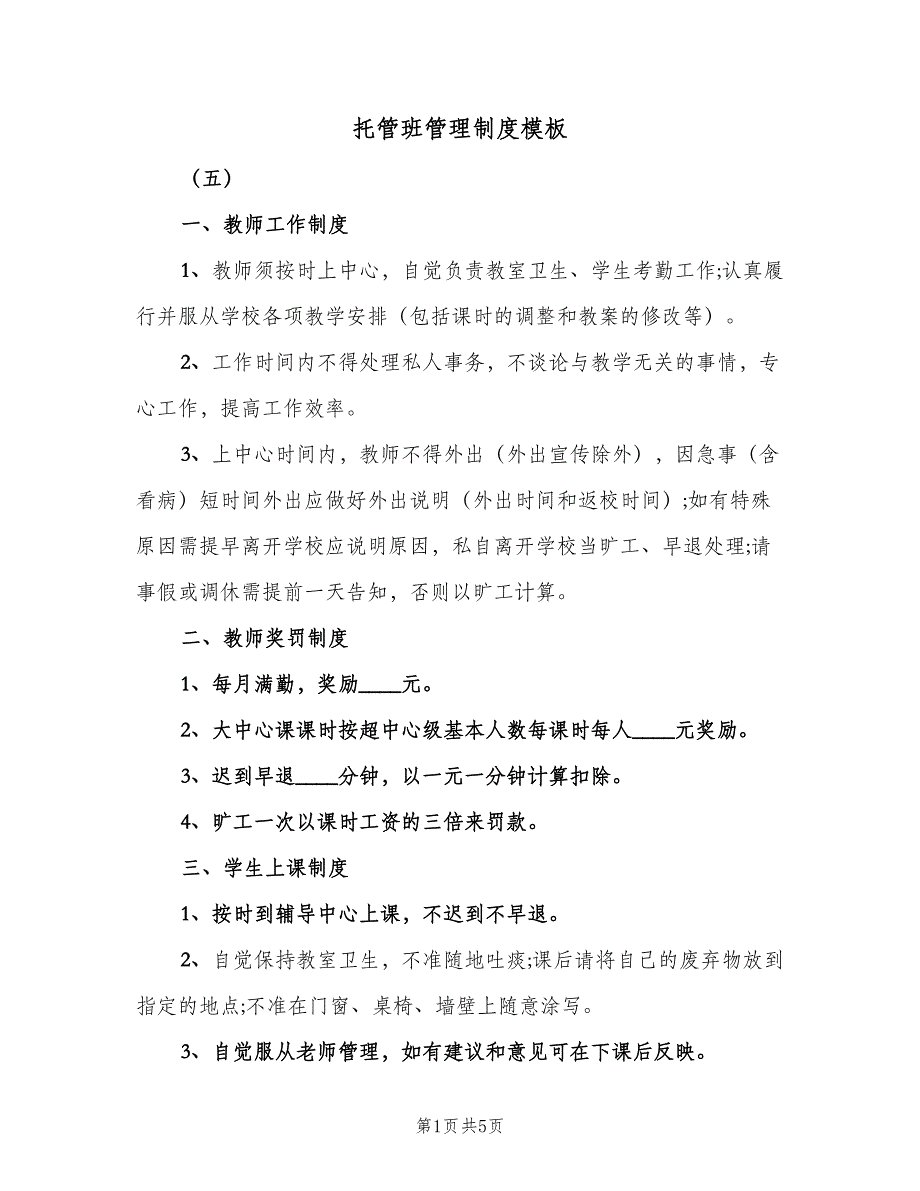 托管班管理制度模板
（五）
一、教师工作制度
1、教师须按时上中心，自觉负责教室卫生、学生考勤工作;认真履
行并服从学校各项教学安排（包括课时的调整和教案的修改等）。
2、工作时间内不得处理私人事务，不谈论与教学无关的事情，专
心工作，提高工作效率。
3、上中心时间内，教师不得外出（外出宣传除外），因急事（含
看病）短时间外出应做好外出说明（外出时间和返校时间）;如有特殊
原因需提早离开学校应说明原因，私自离开学校当旷工、早退处理;请
事假或调休需提前一天告知，否则以旷工计算。
二、教师奖罚制度
1、每月满勤，奖励____元。
2、大中心课课时按超中心级基本人数每课时每人____元奖励。
3、迟到早退____分钟，以一元一分钟计算扣除。
4、旷工一次以课时工资的三倍来罚款。
三、学生上课制度
1、按时到辅导中心上课，不迟到不早退。
2、自觉保持教室卫生，不准随地吐痰;课后请将自己的废弃物放到
指定的地点;不准在门窗、桌椅、墙壁上随意涂写。
3、自觉服从老师管理，如有建议和意见可在下课后反映。
第1页共5页